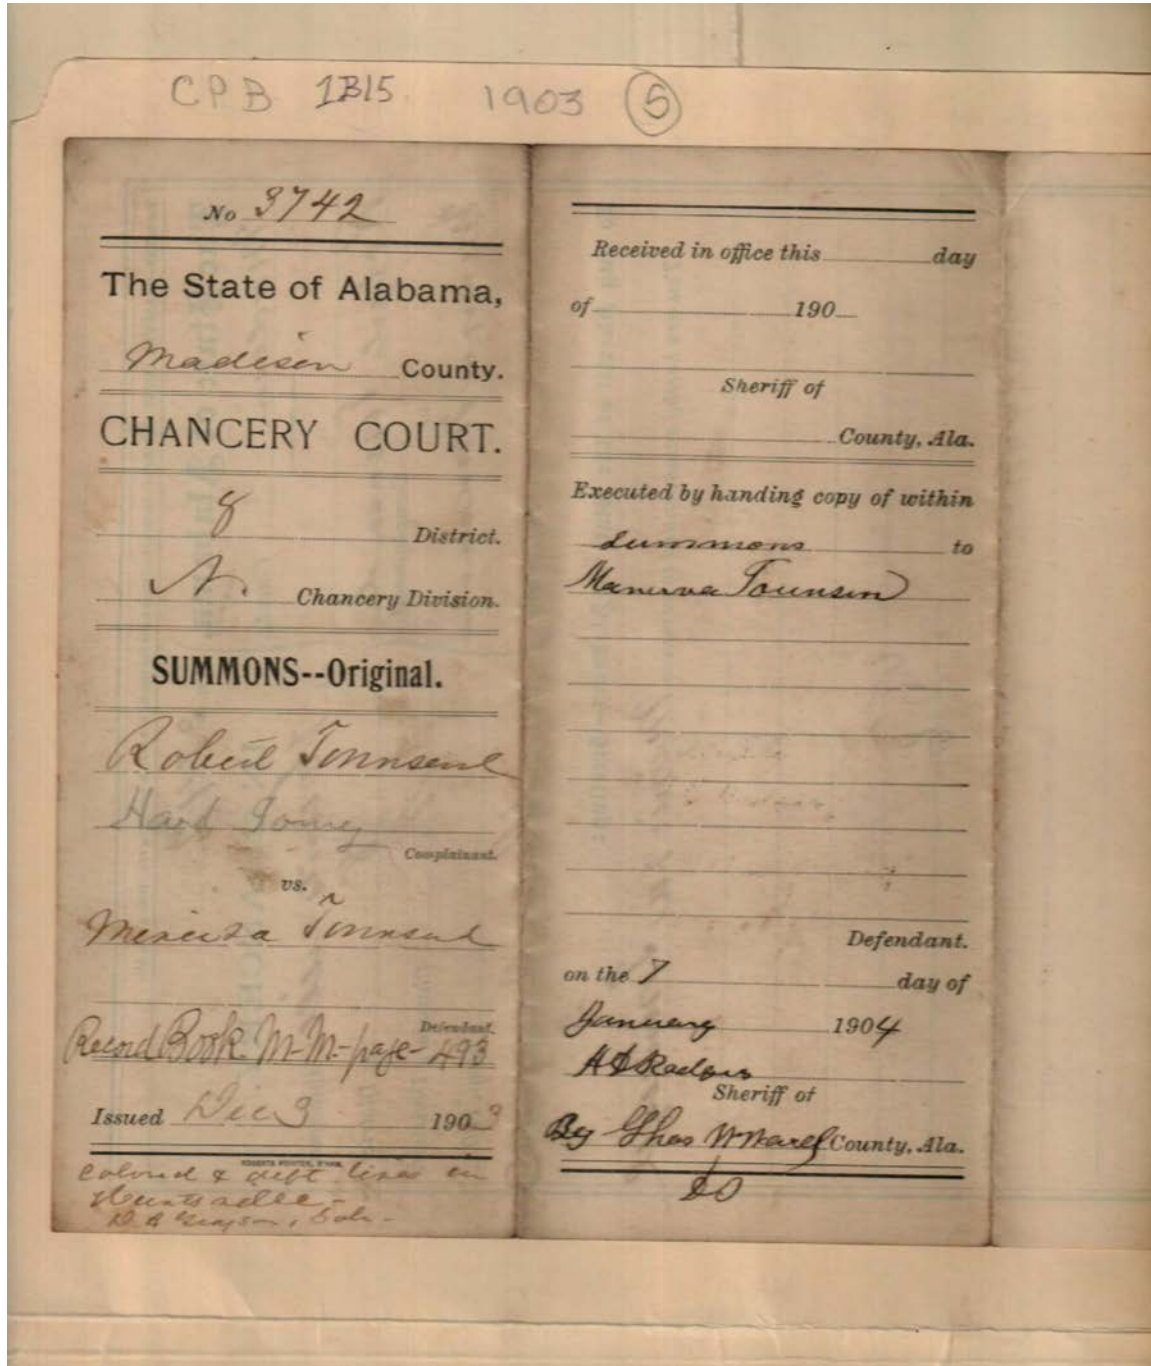 CPB 1B15 1903 5
No 3742
The State of Alabama,
Madison County.
CHANCERY COURT.
8 District.
N. Chancery Division.
SUMMONS--Original.
Robert Townsend
Complainant.
vs.
Townsend
Defendant.
Record Book M-M- page- 493
Issued Dec 3 1903
colored & deft lives in
Huntsville-
Received in office this day
of 190
Sheriff of
County, Ala.
Executed by handing copy of within
summons to
Manerva Tounsen
Defendant.
on the 7 day of
January 1904
Sheriff of
By County, Ala.